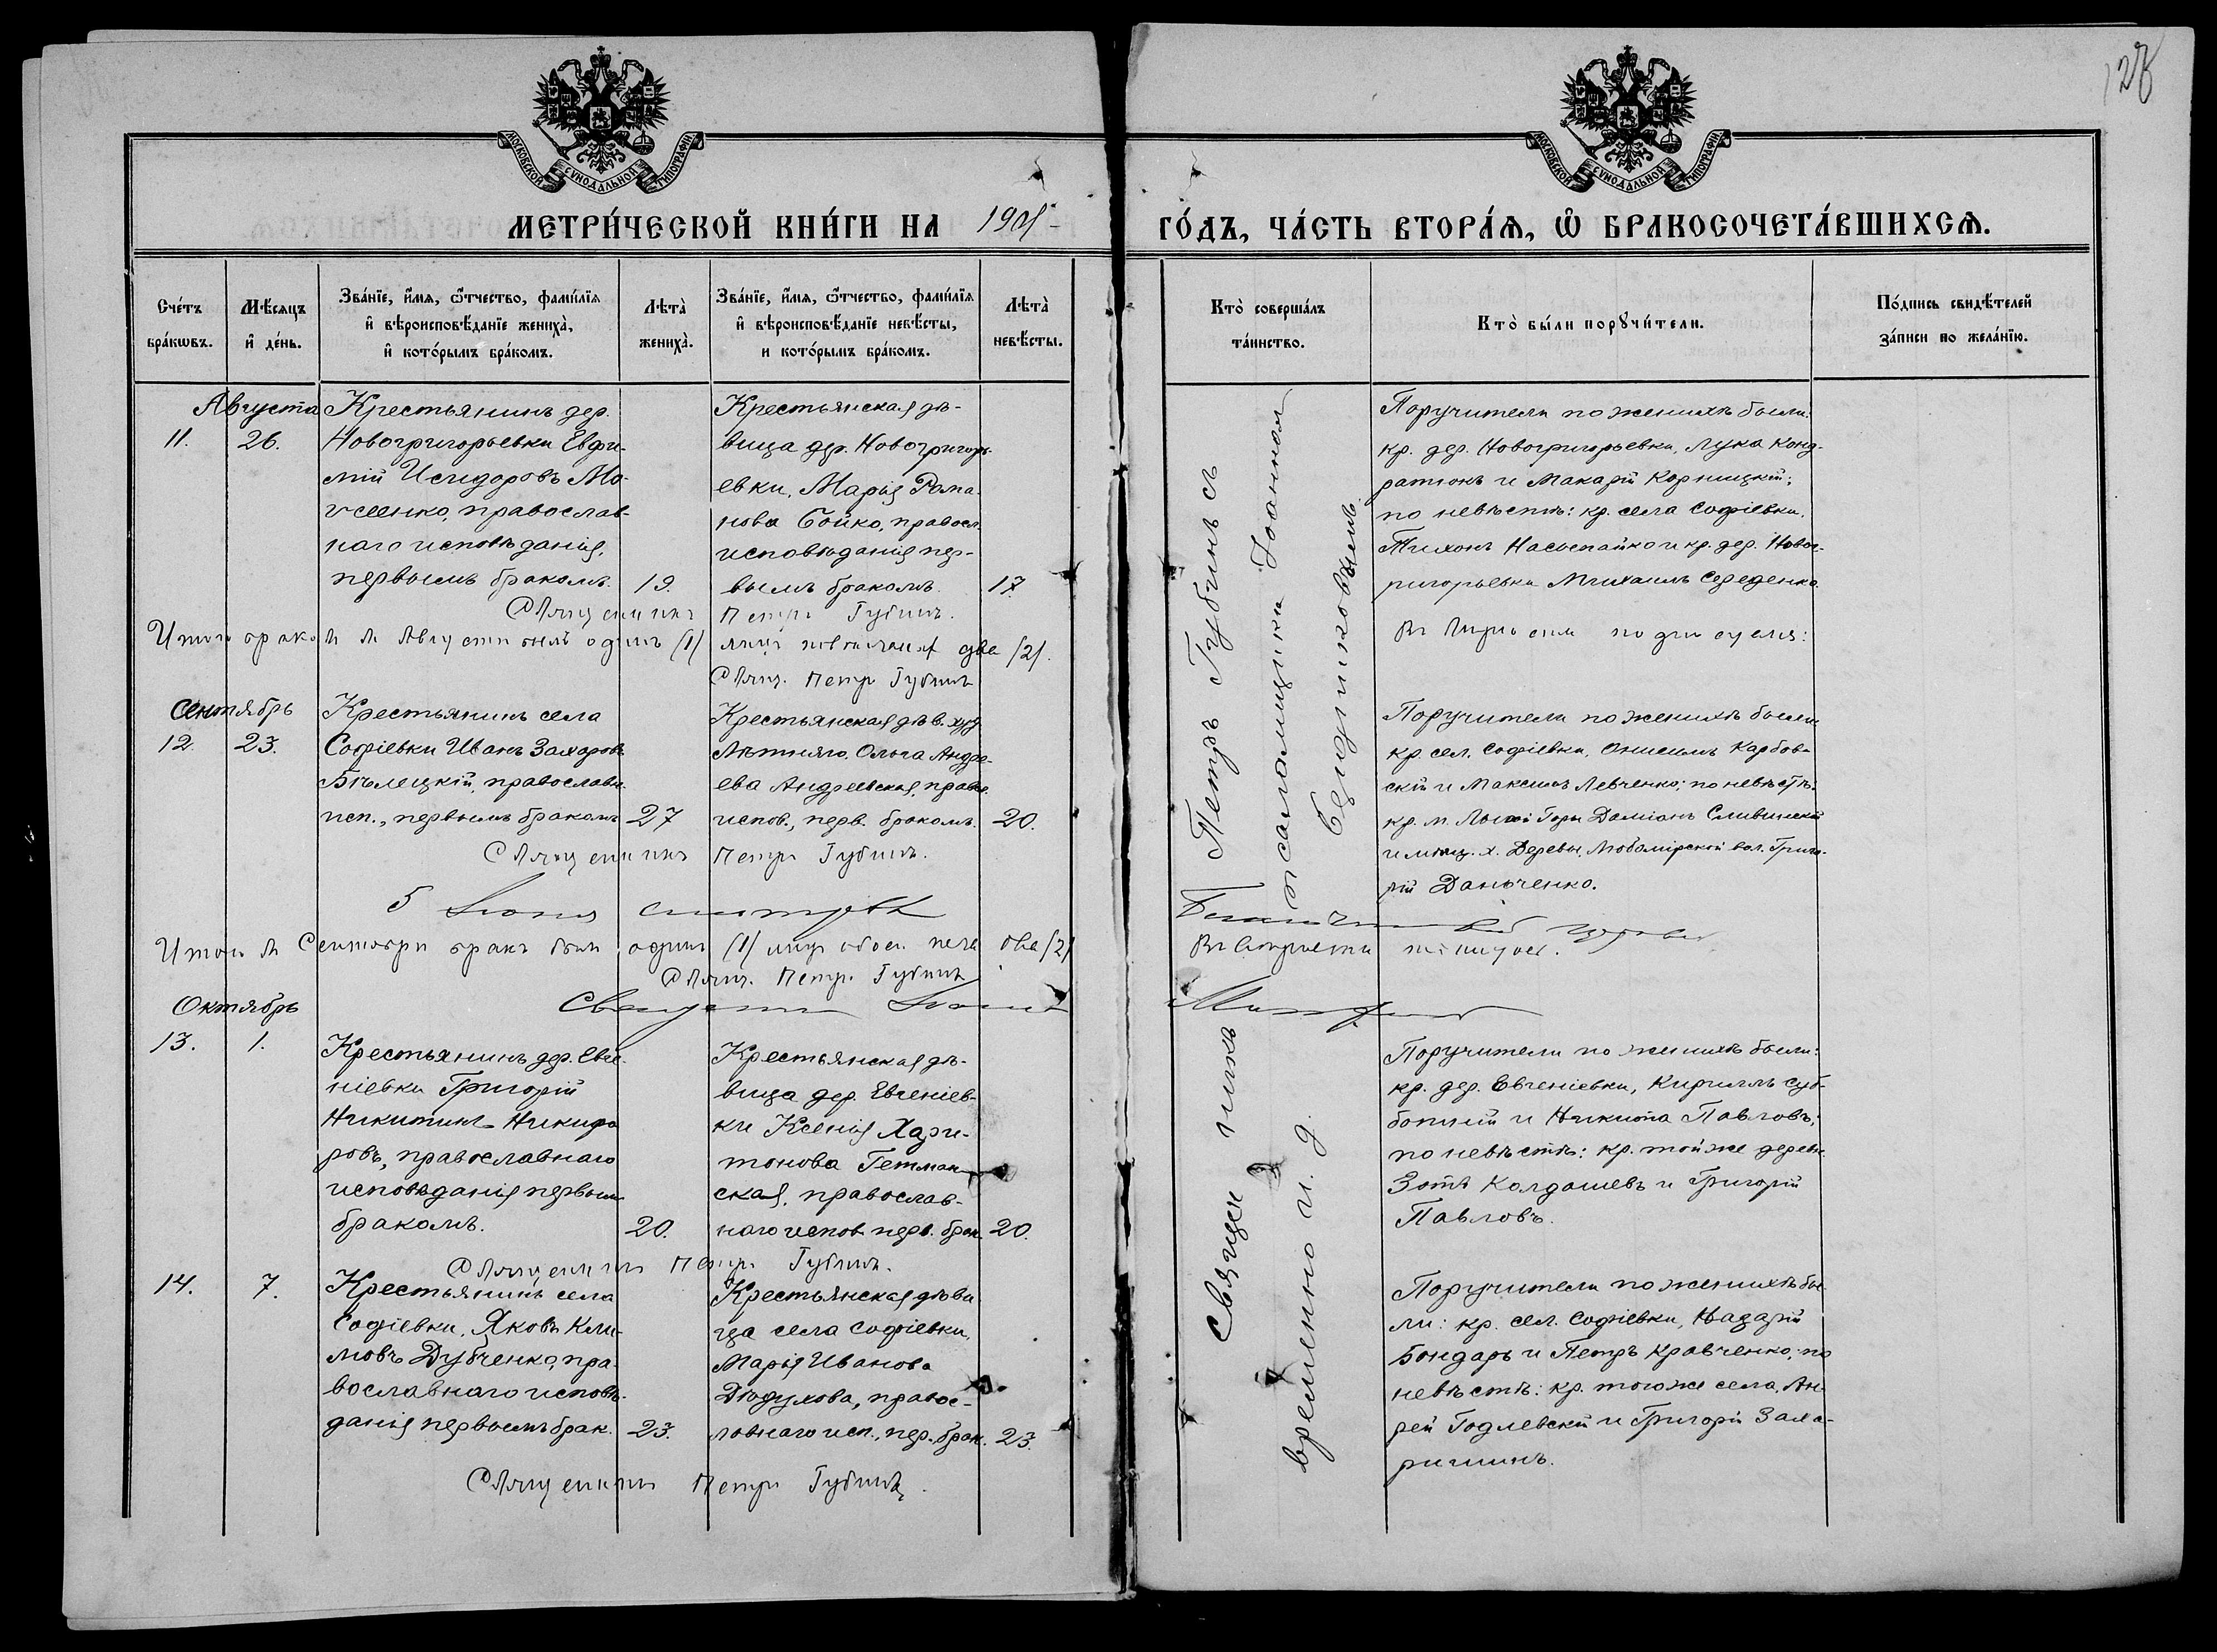 128
МОСКОВСКОЙ СѴНОДАЛЬНОЙ ТИПОГРАФІИ
МОСКОВСКОЙ СѴНОДАЛЬНОЙ ТИПОГРАФІИ
МЕТРИ́ЧЕСКОЙ КНИ́ГИ НА 1905
ГО́ДЪ, ЧА́СТЬ ВТОРА́Я, Ѡ БРАКОСОЧЕТА́ВШИХСѦ.
Сче́тъ бра́кѡвъ.
Мѣ́сѧцъ и де́нь.
Зва́нїе, и҆́мѧ, ѻ҆́тчество, фами́лїѧ
и҆ вѣроисповѣ́данїе жениха̀,
и҆ кото́рымъ бра́комъ.
Лѣта̀ жениха̀.
Зва́нїе, и҆́мѧ, ѻ҆́тчество, фами́лїѧ
и҆ вѣроисповѣ́данїе невѣ́сты,
и кото́рымъ бра́комъ.
Лѣта̀ невѣ́сты.
Кто̀ соверша́лъ та́инство.
Кто̀ бы́ли порꙋчи́тели.
По́дпись свидѣ́телей
за́писи по жела́нїю.
Августа
11. 26.
Крестьянинъ дер.
Новогригорьевки Евфи-
мій Исидоровъ Мо-
исеенко, православ-
наго исповѣданія,
первымъ бракомъ. 19.
Крестьянская дѣ-
вица дер. Новогригорь-
евки, Марія Рома-
нова Бойко, правосл.
исповѣданія пер-
вымъ бракомъ. 17.
Поручители по женихѣ были:
кр. дер. Новогригорьевки, Лука Конд-
ратюкъ и Макарій Корницкій;
по невѣстѣ: кр. села Софіевки,
Тихонъ Насыпайко и кр. дер. Новог-
ригорьевки Михаилъ Середенко.
Священникъ Петръ Губинъ.
Итого браковъ въ Августѣ былъ одинъ (1) лицъ два (2).
Свящ. Петръ Губинъ
Сентябрь
12. 23.
Крестьянинъ села
Софіевки Иванъ Захаровъ
Бѣлецкій, православн.
исп., первымъ бракомъ 27
Крестьянская дѣв. хут.
Лѣтняго, Ольга Андре-
ева Андреевская, правос.
испов., перв. бракомъ. 20.
Поручители по женихѣ были
кр. сел. Софіевки, Онисимъ Карбов-
скій и Максимъ Левченко; по невѣстѣ:
кр. м. Лысой Горы Даміанъ Сливинскій
и мѣщ. х. Деревы, Любомірской вол. Григо-
рій Даньченко.
Священникъ Петръ Губинъ.
Итого въ Сентябри бракъ былъ одинъ (1) лицъ обоего пола два (2)
Свящ. Петръ Губинъ
Октябрь
13. 1.
Крестьянинъ дер. Евге-
ніевки Григорій
Никитинъ Никифо
ровъ, православнаго
исповѣданія первымъ
бракомъ. 20.
Крестьянская дѣ-
вица дер. Евгеніев-
ки Ксенія Хари-
тонова Гетман-
ская, православ-
наго испов. перв. брак. 20.
Поручители по женихѣ были:
кр. дер. Евгеніевки, Кириллъ Суб-
ботній и Никита Павловъ;
по невѣстѣ: кр. той же деревн.
Зотъ Колдашевъ и Григорій
Павловъ.
Священникъ Петръ Губинъ.
14. 7.
Крестьянинъ села
Софіевки, Яковъ Кли-
мовъ Дубченко, пра-
вославнаго исповѣ-
данія первымъ брак. 23.
Крестьянская дѣви
ца села Софіевки,
Марія Иванова
Дюдулова, правос-
лавнаго исп., пер. брак. 23.
Поручители по женихѣ бы
ли: кр. сел. Софіевки, Назарій
Бондарь и Петръ Кравченко; по
невѣстѣ: кр. того же села, Анд-
рей Годлевскій и Григорій Заха-
ришинъ.
Священникъ Петръ Губинъ.
Священникъ Петръ Губинъ съ
временно и. д. псаломщика Іоанномъ